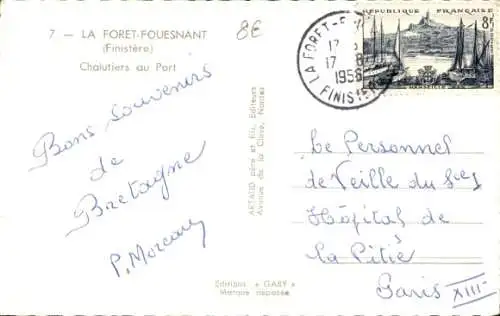 7 — LA FORET-FOUESNANT
(Finistère)
Chalutiers au Port
8€
Bons souvenirs
de
Bretagne
ARTAUD père et fils, Editeurs
Avenue de la Close, Nantes
Editions « GABY »
Marque déposée
LA FORET-F
17
17 8
1956
FINISTERE
REPUBLIQUE FRANÇAISE
8F
MARSEILLE
Le Personnel
de Veille du Sce
Hôpital de
la Pitié
Paris XIII